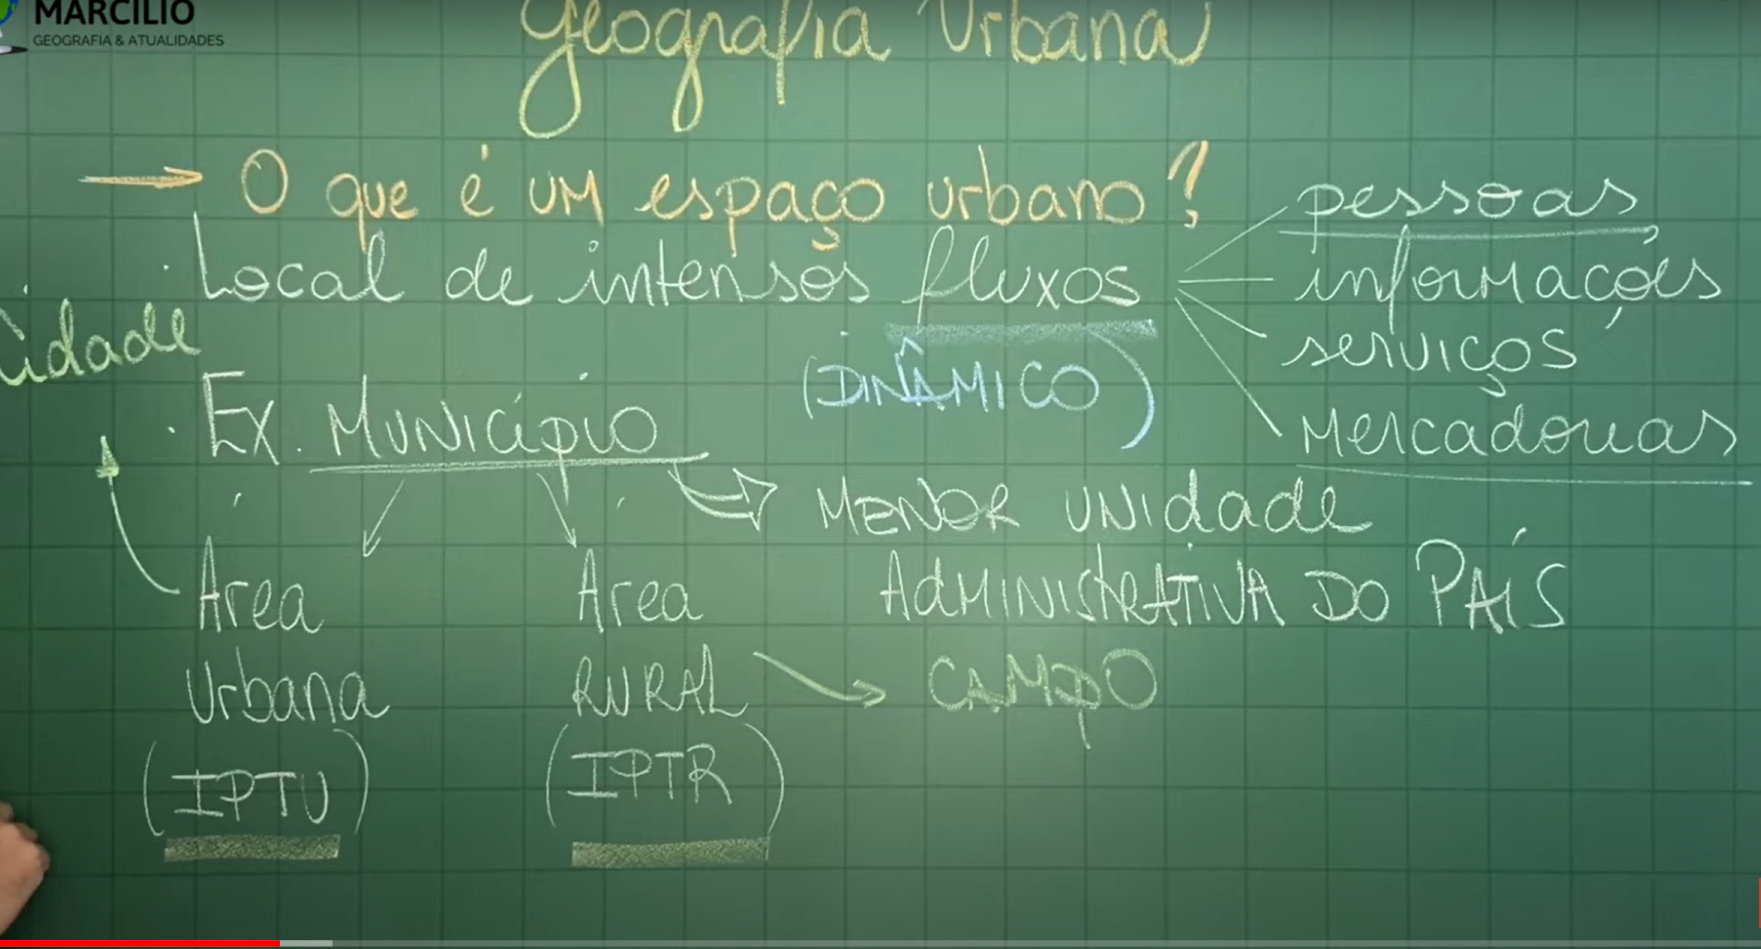 MARCILIO
GEOGRAFIA & ATUALIDADES
Geografia Urbana
O que é um espaço urbano?
Local de intensos fluxos
(DINÂMICO)
pessoas
informações
serviços
mercadorias
Cidade
Ex. Município
MENOR UNIdade
AdMINIStRATIVA DO PAÍS
Área
Urbana
(IPTU)
Área
RURAL
(IPTR)
CAMPO